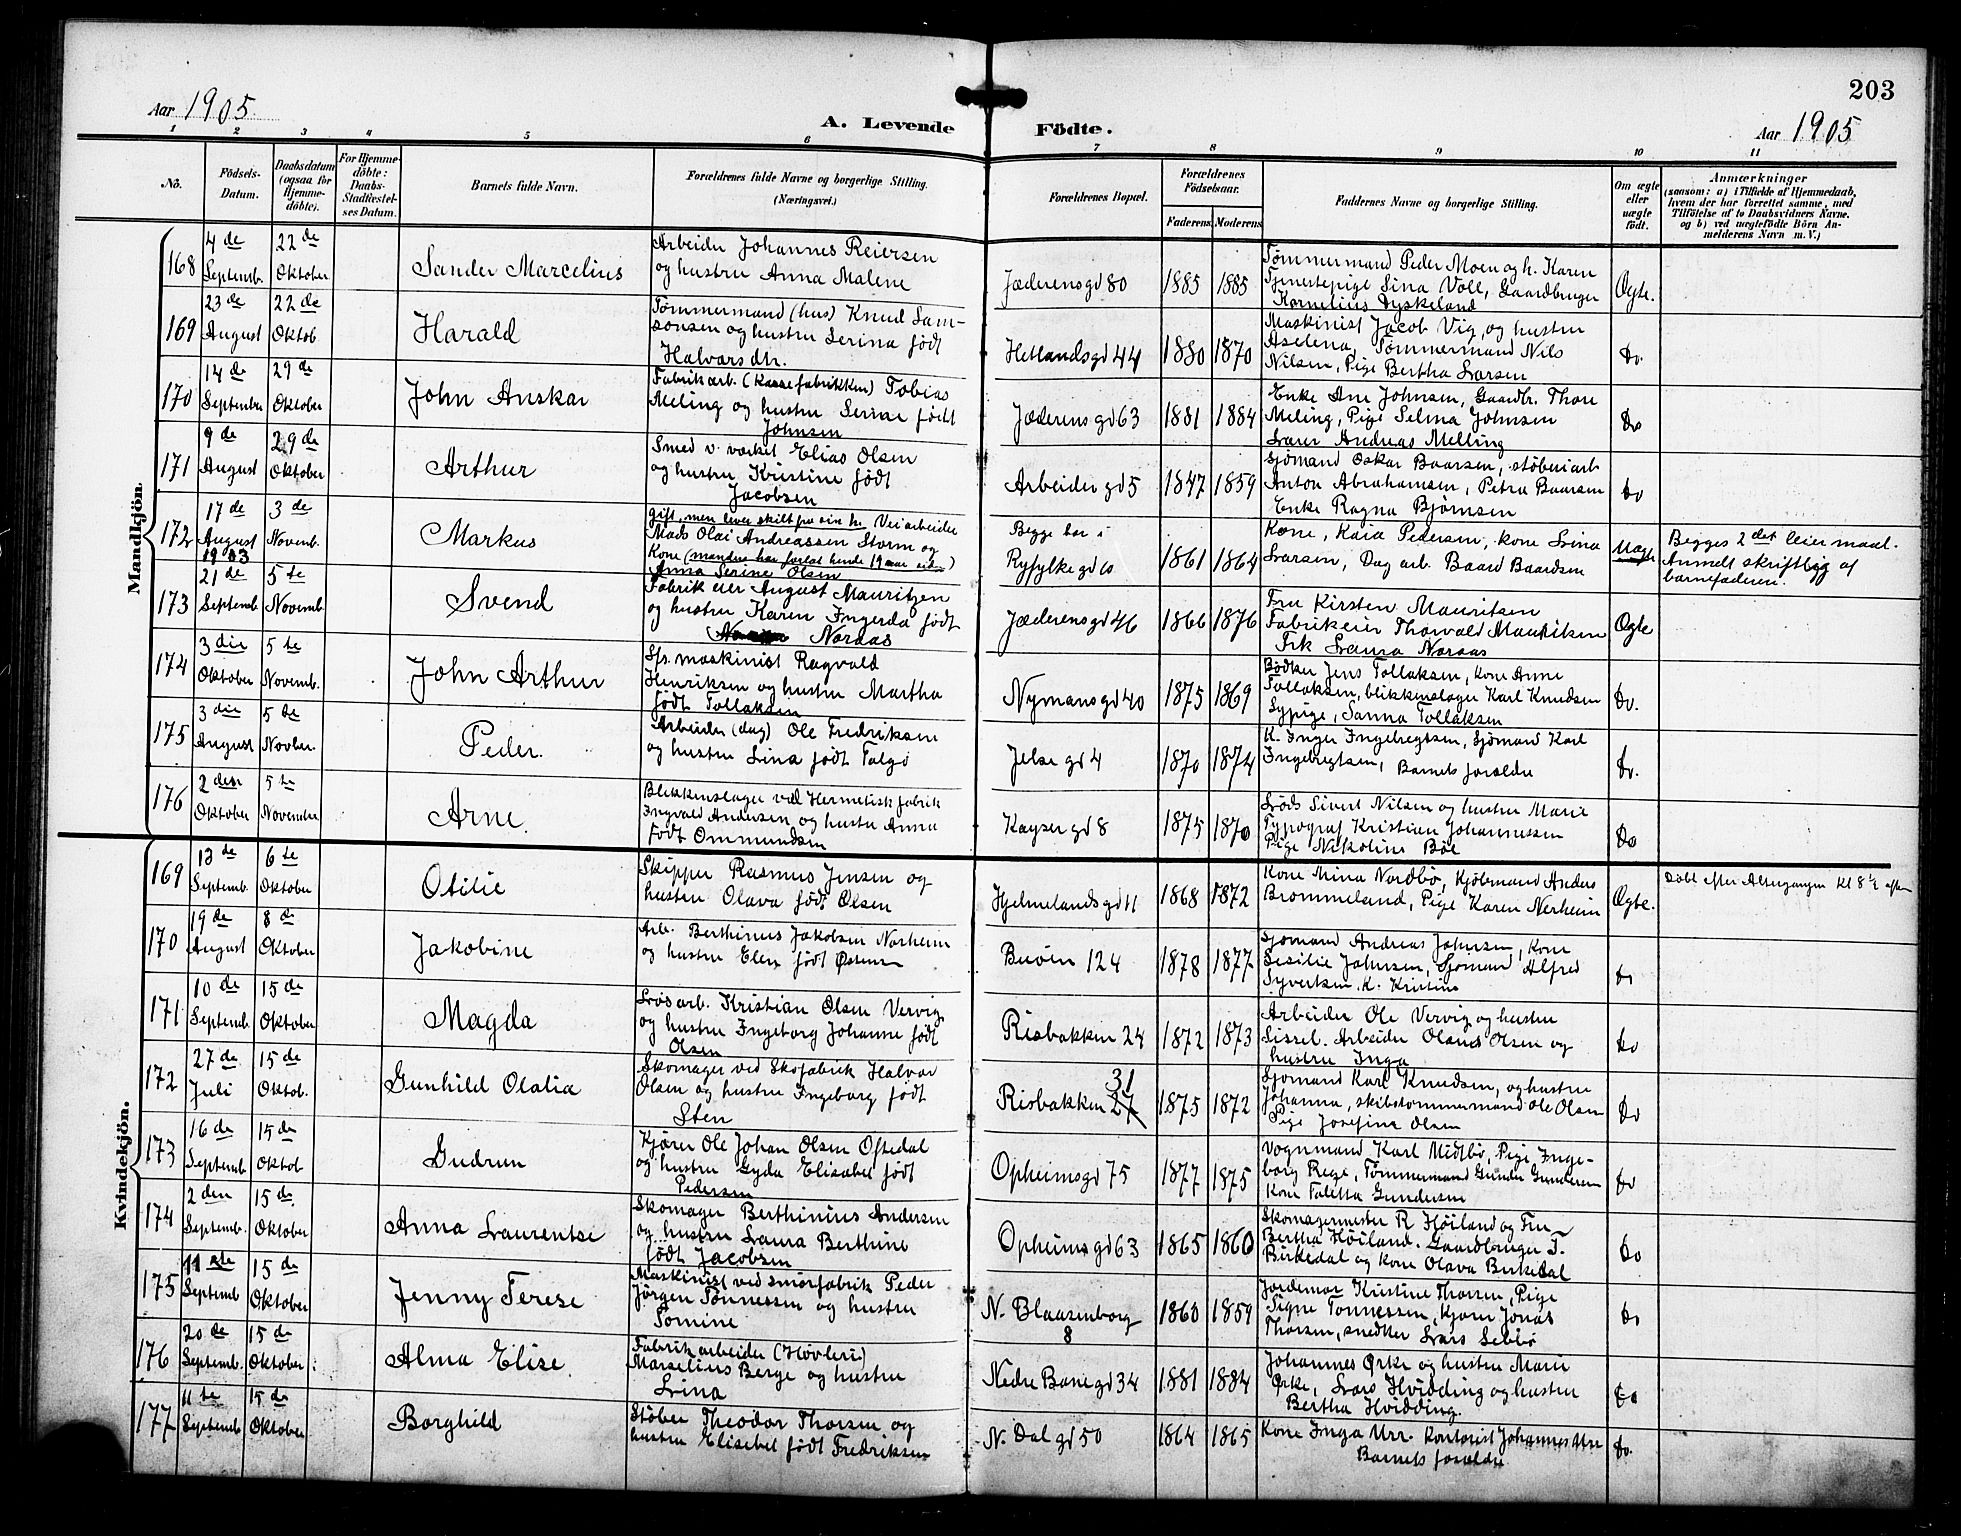 203
Aar 1905.
A. Levende Födte.
Aar 1905
1 2 3 4 5 6 7 8 9 10 11
No.
Födsels-Datum.
Daabsdatum (ogsaa for Hjemme-döbte).
For Hjemme-döbte: Daabs-Stadfæstelses Datum.
Barnets fulde Navn.
Forældrenes fulde Navne og borgerlige Stilling.
(Næringsvei.)
Forældrenes Bopæl.
Forældrenes Fødselsaar.
Faderens. Moderens.
Faddernes Navne og borgerlige Stilling.
Om ægte eller uægte født.
Anmærkninger
(saasom: a) i Tilfælde af Hjemmedaab,
hvem der har forrettet samme, med
Tilföielse af to Daabsvidners Navne,
og b) ved uægtefödte Börn An-
melderens Navn m. V.)
Mandkjön.
168 4de Septemb. 22de Oktober
Sander Marcelius
Arbeider Johannes Reiersen
og hustru Anna Malene
Jæderensgd 80 1885 1885
Tømmermand Peder Moen og h. Karen
Tjenestepige Sina Voll, Gaardbruger
Kornelius Dyskeland
Ægte.
169 23de August 22de Oktob.
Harald
Tømmermand (hus) Knud Sam-
sonsen og hustru Serina født
Halvarsdtr.
Hetlandsgd 44 1880 1870
Maskinist Jacob Vig, og hustru
Aselena, Tømmermand Nils
Nilsen, Pige Bertha Larsen
Do.
170 14de September 29de Oktober
John Anskar
Fabrikarb. (Kassefabrikken) Tobias
Meling og hustru Serine født
Johnsen
Jæderensgd 63 1881 1884
Enke Ane Johnsen, Gaardbr. Thore
Meling, Pige Selma Johnsen
Lærer Andreas Melling
Do
171 9de August 29de Oktober
Arthur
Smed v. værket Elias Olsen
og hustru Kristine født
Jacobsen
Arbeidergd 5 1847 1859
Sjømand Oskar Baarsen, støberiarb
Anton Abrahamsen, Petra Baarsen
Enke Ragna Bjørnsen
Do
172 17de August 1903 3de Novemb.
Markus
gift, men lever skilt fra sin h. Veiarbeider
Mads Olai Andreassen Storm og
Kone (manden har forlat hende 19 aar siden)
Anna Serine Olsen
Begge bor i
Ryfylkegd 10 1861 1864
Kone, Kaia Pedersen, Kone Lina
Larsen, Dag arb. Baard Baardsen
Uægte
Begges 2det leiermaal.
Anmelt skriftlig af
barnefaderen.
173 21de Septemb. 5te Novemb.
Svend
Fabrikeier August Mauritzen
og hustru Karen Ingerda født
Noraas
Jæderensgd 46 1866 1876
Fru Kirsten Mauritsen
Fabrikeier Thorvald Mauritsen
Frk Laura Noraas
Ægte
174 3die Oktober 5te Novemb.
John Arthur
maskinist Ragvald
Henriksen og hustru Martha
født Tollaksen
Nymansgd 40 1875 1869
Bødker Jens Tollaksen, Kone Anne
Tollaksen, blikkenslager Karl Knudsen
Sypige, Sanna Tollaksen
Do.
175 3die August 5te Novber.
Peder.
Arbeider (dag) Ole Fredriksen
og hustru Lina født Talgø
Jelsegd 4 1870 1874
K. Inger Ingebregtsen, Sjømand Karl
Ingebregtsen, Barnets forældre
Do.
176 2den Oktober 5te November
Arne.
Blikkenslager ved Hermetikfabrik
Ingvald Andersen og hustru Anna
født Ommundsen
Kaysergd 8 1875 1870
Lods Sivert Nilsen og hustru Marie
Typograf Kristian Johannessen
Pige Nikoline Bøe
Do
Kvindekjön.
169 13de Septemb. 6te Oktober
Otilie
Skipper Rasmus Jensen og
hustru Olava født Olsen
Hjelmelandsgd 11 1868 1872
Kone Mina Nordbø, Kjøbmand Anders
Brommeland, Pige Karen Nerheim
Ægte.
Døbt efter Altergangen Kl 8½ aften
170 19de August 8de Oktober
Jakobine
Arb. Berthinus Jakobsen Norheim
og hustru Elen født
Buøen 124 1878 1877
Sjømand Andreas Johnsen, Kone
Sesilie Johnsen, Sjømand Alfred
Syvertsen, K. Kristine
Do
171 10de Septemb. 15de Oktober
Magda
arb. Kristian Olsen Vervig
og hustru Ingeborg Johanne født
Olsen
Risbakken 24 1872 1873
Arbeider Ole Vervig og hustru
Sissel. Arbeider Olaus Olsen og
hustru Inga
Do
172 27de Juli 15de Oktob.
Gunhild Olalia
Skomager ved Skofabrik Halvor
Olsen og hustru Ingeborg født
Sten
31
Risbakken 27 1875 1872
Sjømand Karl Knudsen, og hustru
Johanna, skibstømmermand Ole Olsen
Pige Josefine Olsen
Do
173 16de Septemb. 15de Oktob.
Gudrun
Kjører Ole Johan Olsen Oftedal
og hustru Gyda Elisabet født
Pedersen
Opheimsgd 75 1877 1875
Vognmand Karl Midtbø, Pige Inge-
borg Rege, Tømmermand Gunder Gundersen
Kone Taletta Gundersen
Do
174 2den Septemb. 15de Oktober
Anna Laurentse
Skomager Berthinius Andersen
og hustru Laura Berthine
født Jacobsen
Opheimsgd 63 1865 1860
Skomagermester R Høiland og Fru
Bertha Høiland. Gaardbruger T.
Birkedal og Kone Olava Birkedal
Do
175 11te Septemb 15de Oktober
Jenny Terese
Maskinist ved smørfabrik Peder
Jørgen Tønnessen og hustru
Tomine
N. Blaasenborg
8
1860 1859
Jordemor Kristine Thorsen, Pige
Signe Tonnessen, Kjører Jonas
Thorsen, snedker Lars Sebø
Do
176 20de Septemb. 15de Oktober
Alma Elise.
Fabrikarbeider (Høvleri)
Marselius Berge og hustru
Lina
Nedre Banegd 34 1881 1884
Johannes Ørke og hustru Marie
Ørke, Lars Hvidding og hustru
Bertha Hvidding.
Do
177 11te Septemb 15de Oktober
Borghild
Støber Theodor Thorsen og
hustru Elisebet født Fredriksen
N. Dalgd 50 1864 1865
Kone Inga Urr. Kontorist Johannes Urr
Barnets forældre
Do.